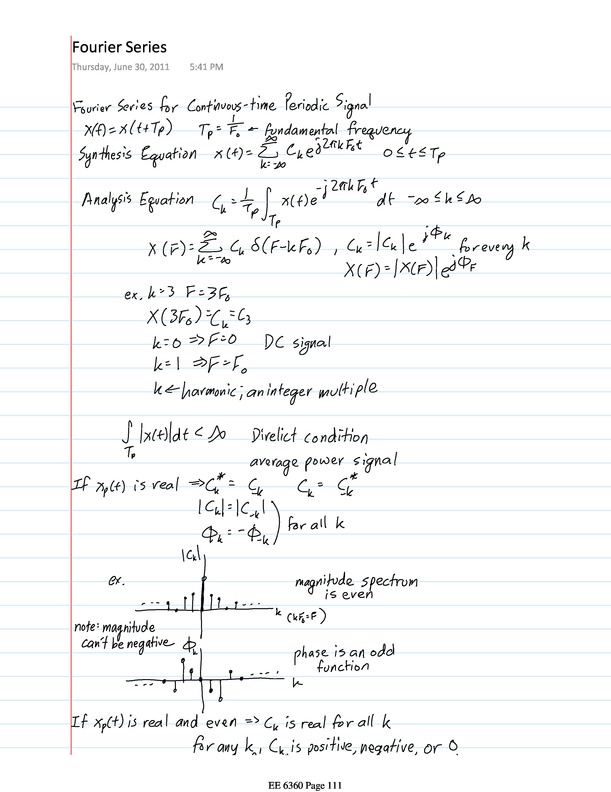 Fourier Series
Thursday, June 30, 2011 5:41 PM
Fourier Series for Continuous-time Periodic Signal
x(t)=x(t+Tp) Tp=1/F₀ ← fundamental frequency
Synthesis Equation x(t)=∑_{k=-∞}^{∞} C_k e^{j2πkF₀t} 0≤t≤Tp
Analysis Equation C_k=1/Tp ∫_{Tp} x(t)e^{-j2πkF₀t} dt -∞≤k≤∞
X(F)=∑_{k=-∞}^{∞} C_k δ(F-kF₀), C_k=|C_k|e^{jΦ_k} for every k
X(F)=|X(F)|e^{jΦ_F}
ex. k=3 F=3F₀
X(3F₀)=C_k=C₃
k=0 ⇒F=0 DC signal
k=1 ⇒F=F₀
k← harmonic; an integer multiple
∫_{Tp} |x(t)|dt < ∞ Direlict condition
average power signal
If xp(t) is real ⇒ C_k^* = C_{-k} C_k = C_{-k}^*
|C_k|=|C_{-k}|
Φ_k = -Φ_{-k} ) for all k
|C_k|
ex. magnitude spectrum
is even
k (kF₀=F)
note: magnitude
can't be negative Φ_k
phase is an odd
function
k
If xp(t) is real and even => C_k is real for all k
for any k, C_k is positive, negative, or 0
EE 6360 Page 111